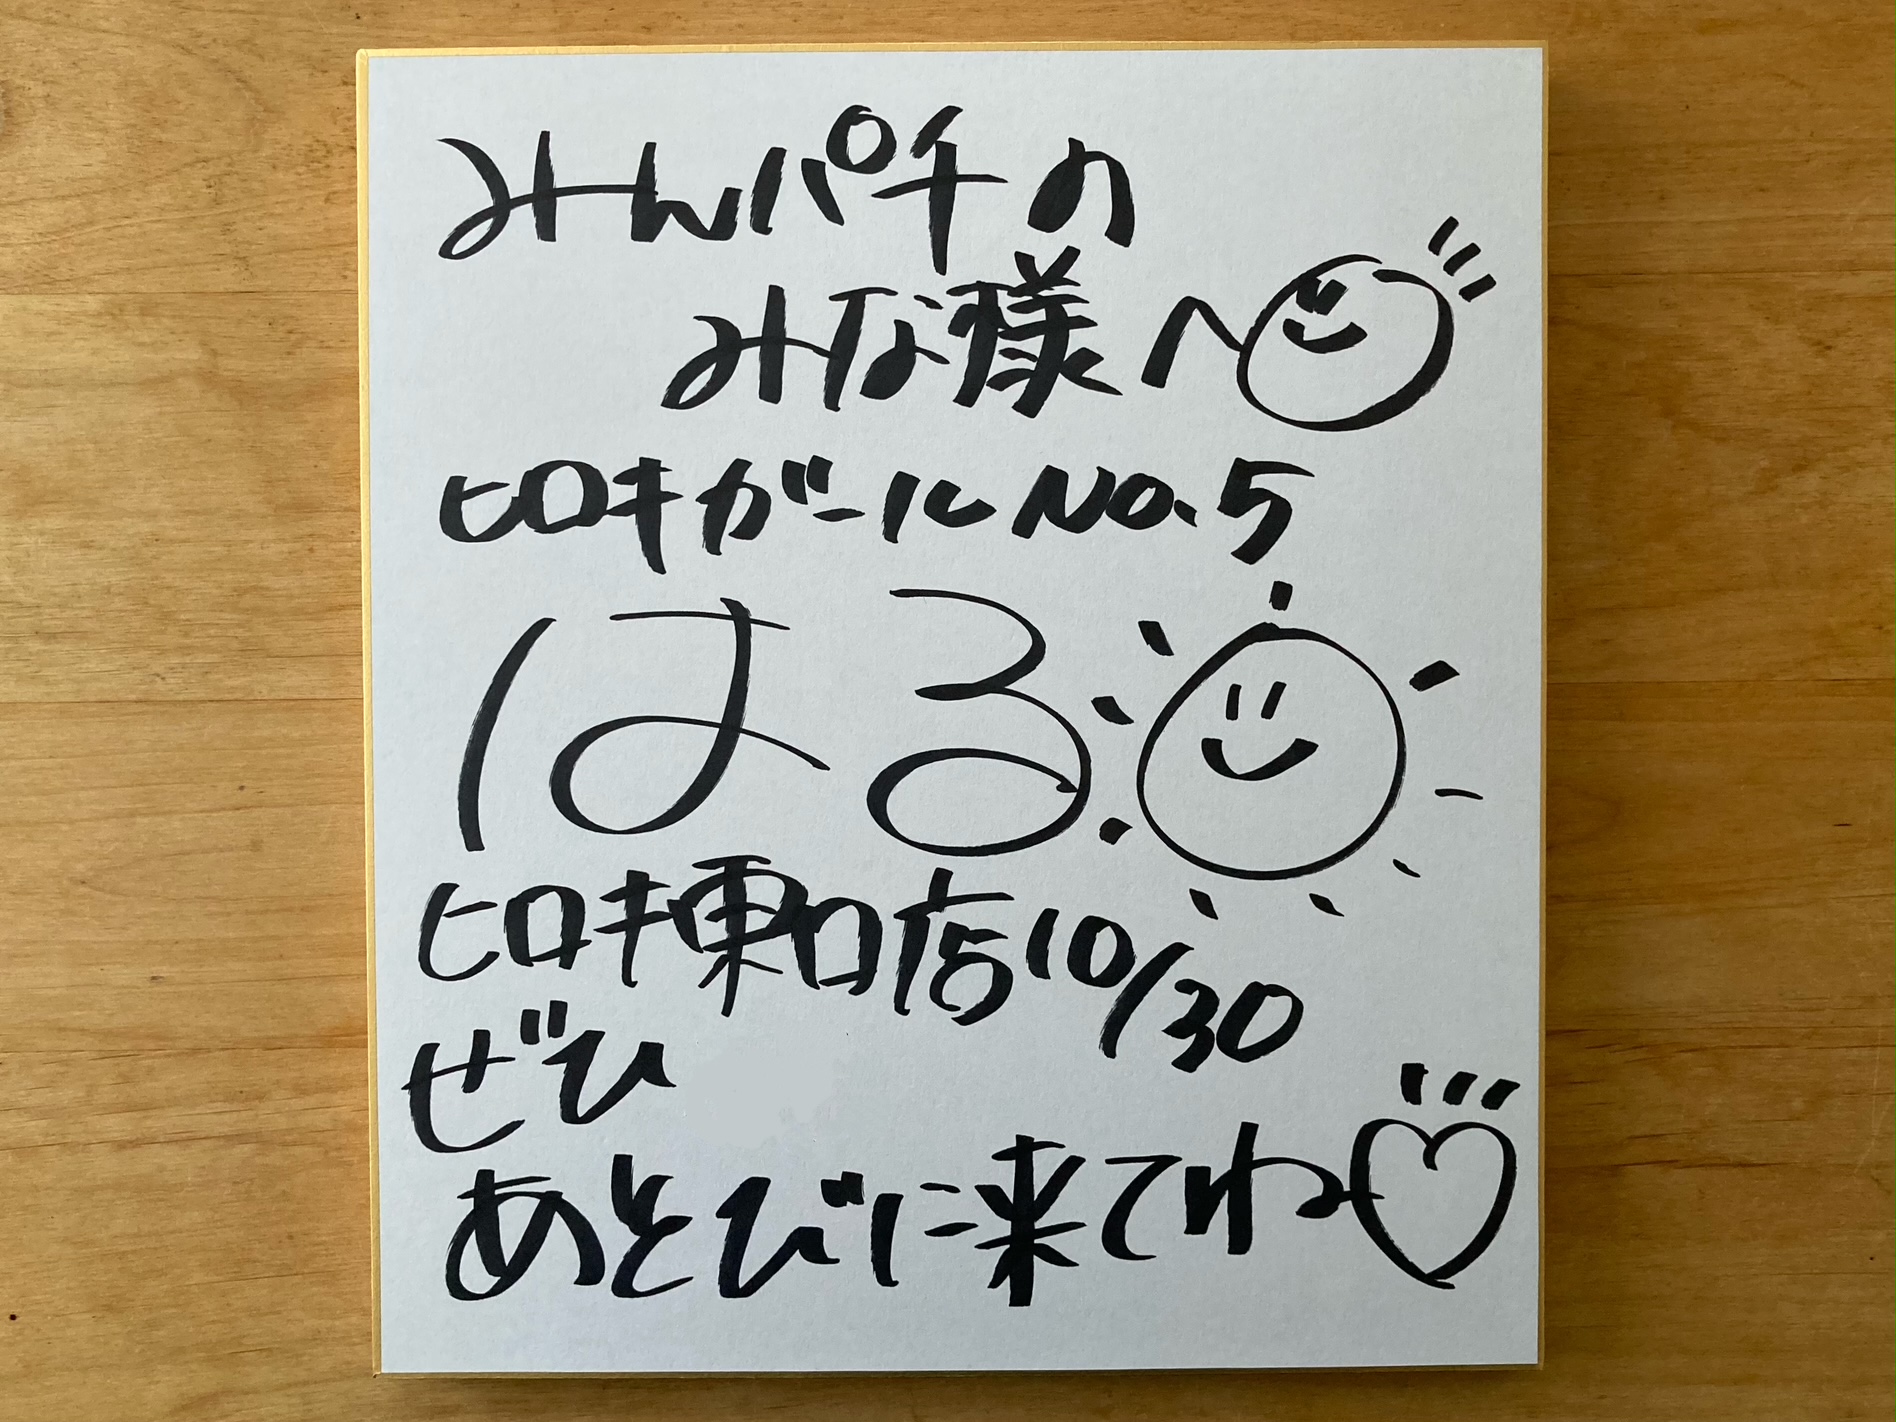 みんパチの
みな様へ
ヒロキガールNo.5
はる
ヒロキ東口店10/30
ぜひ
あそびに来てね